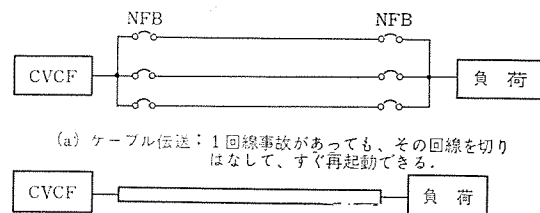 NFB NFB
CVCF 負荷
(a) ケーブル伝送：1回線事故があっても、その回線を切り
はなして、すぐ再起動できる.
CVCF 負荷